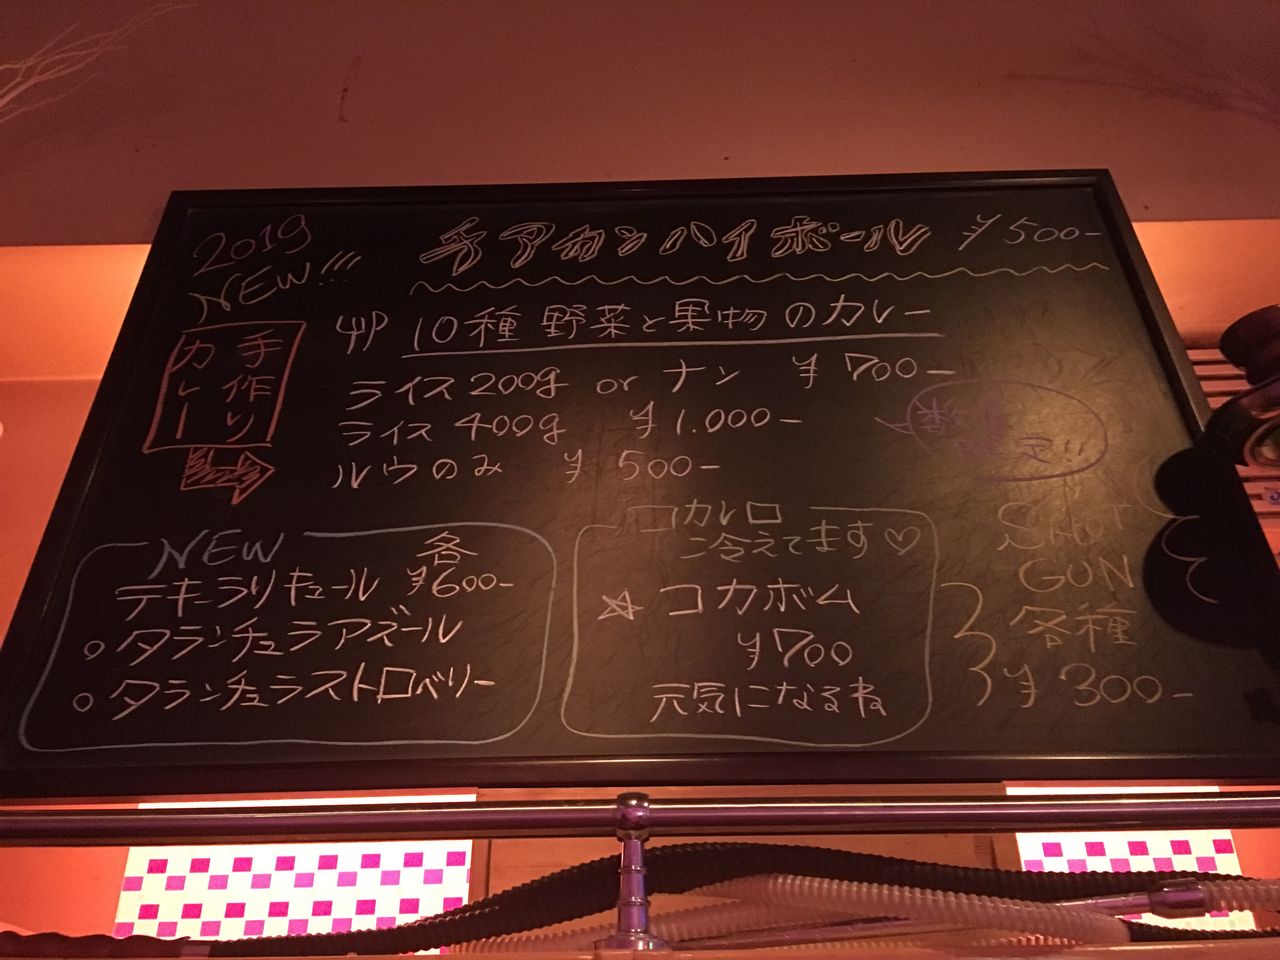 2019
NEW!!!
チアカンハイボール ¥500-
手作り
カレー
10種 野菜と果物のカレー
ライス 200g or ナン ¥700-
ライス 400g ¥1.000-
ルウのみ ¥500-
NEW
各
テキーラリキュール ¥600-
○タランチュラアズール
○タランチュラストロベリー
コカレロ
冷えてます♡
☆コカボム
¥700
元気になるね
SHOT
GUN
各種
¥300-